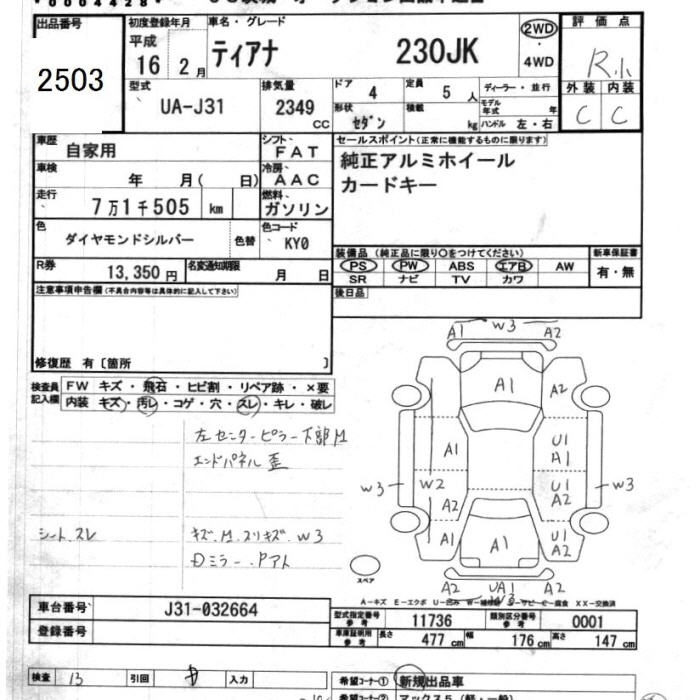 00004428
出品番号 初度登録年月 車名・グレード 2WD 評価点
2503 平成 16 2月 ティアナ 230JK ・4WD R小
型式 UA-J31 排気量 2349 CC ドア 4 定員 5 人 ディーラー・並行 外装 内装
形状 セダン 積載 kg モデル年式 年 ハンドル 左・右 C C
車歴 自家用 シフト FAT セールスポイント(正常に機能するものに限ります)
車検 年 月( 日) 冷房 AAC 純正アルミホイール
走行 7万1千505 km 燃料 ガソリン カードキー
色 ダイヤモンドシルバー 色替 色コード KY0
装備品 (純正品に限り○をつけてください) 新車保証書
R券 13,350円 名変通知期限 月 日 PS PW ABS エアB AW 有・無
SR ナビ TV カワ
注意事項申告欄(不具合内容等は具体的に記入して下さい) 後日品
修復歴 有〔箇所 〕
検査員 FW キズ・飛石・ヒビ割・リペア跡・×要
記入欄 内装 キズ・汚レ・コゲ・穴・スレ・キレ・破レ
左センターピラー下部M
エンドパネル歪
シート.スレ キズ.M.スリキズ.W3
Dミラー.Pアト
A1 W3 A2
A1 A2
A1 U1 A1
W3 W2 U1 A2 W3
A2
A1 A1 U1 A2
スペア A2 UA1 W3 A2
A-キズ E-エクボ U-凹み
車台番号 J31-032664
登録番号
型式指定番号 参考 11736 類別区分番号 参考 0001
車庫証明用 参考 長さ 477 cm 幅 176 cm 高さ 147 cm
検査 13 引回 入力 希望コーナー① 新規出品車
希望コーナー② マックス5(軽・一般)